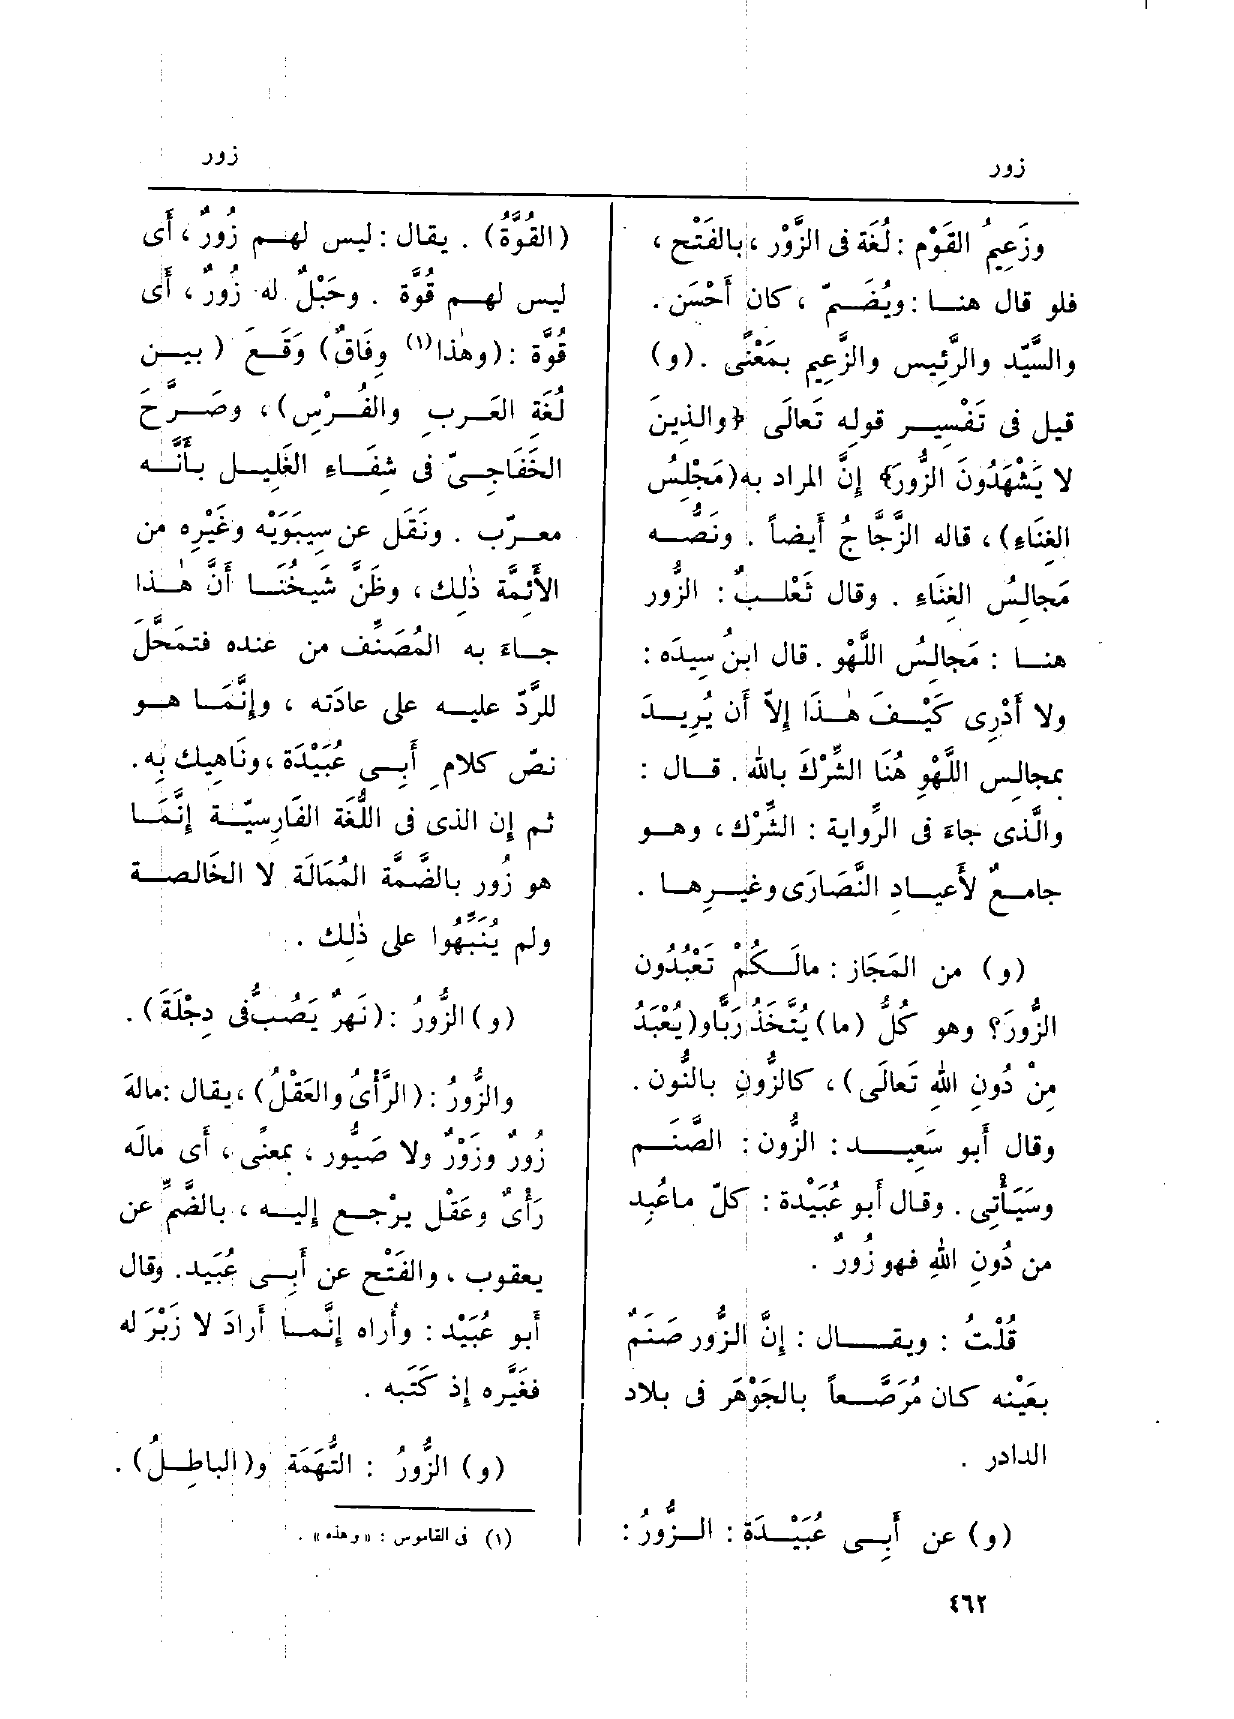 زور
زور
وزَعِيمُ القَوْم : لُغَة فى الزَّوْر ، بالفَتْح ،
فلو قال هنـا : ويُضَـمّ ، كان أَحْسَن .
والسَّيِّد والرَّئِيس والزَّعِيم بمَعْنًى . (و)
قيل فى تَفْسِيـر قوله تَعالَى ﴿والذِينَ
لا يَشْهَدُونَ الزُّورَ﴾ إِنَّ المراد به (مَجْلِسُ
الغِنَاءِ) ، قاله الزَّجّاجُ أَيضاً . ونَصُّـه
مَجالِسُ الغِنَاءِ . وقال ثَعْلَـبٌ : الزُّور
هنـا : مَجالِسُ اللَّهْو . قال ابنُ سِيدَه :
ولا أَدْرِى كَيْـفَ هٰـذَا إِلاّ أَن يُرِيـدَ
بمجالِس اللَّهْوِ هُنَا الشِّرْكَ بالله . قـال :
والَّذى جاءَ فى الرِّواية : الشِّرْك ، وهـو
جامـعٌ لأَعيـادِ النَّصَارَى وغيـرِهـا .
(و) من المَجَاز : مالَـكُمْ تَعْبُدُون
الزُّورَ؟ وهو كُلُّ (ما) يُتَّخَذُ رَبًّا و(يُعْبَدُ
مِنْ دُونِ اللهِ تَعالَى) ، كالزُّونِ بالنُّون .
وقال أَبو سَعِيـد : الزُّون : الصَّنَـم
وسَيَأْتِى . وقال أَبو عُبَيْدة : كلّ ماعُبِد
من دُونِ اللهِ فهو زُورٌ .
قُلْتُ : ويقـال : إِنَّ الزُّور صَنَمٌ
بعَيْنِه كان مُرَصَّـعاً بالجَوْهَر فى بلاد
الدادر .
(و) عن أَبِـى عُبَيْـدَة : الـزُّورُ :
(القُوَّةُ) . يقال : ليس لهـم زُورٌ ، أَى
ليس لهـم قُوَّة . وحَبْلٌ له زُورٌ ، أَى
قُوَّة : (وهٰذا(١) وِفَاقٌ) وَقَـعَ ( بيـن
لُغَة العَـرب والفُـرْس) ، وصَـرَّحَ
الخَفَاجِـىّ فى شِفَـاءِ الغَلِيـل بـأَنَّـه
معـرّب . ونَقَل عن سِيبَوَيْه وغَيْرِه من
الأَئِمَّة ذٰلِك ، وظَنَّ شَيخُنَـا أَنَّ هٰـذا
جـاءَ به المُصَنِّف من عنده فتَمَحَّلَ
للرَّدّ عليـه على عادَته ، وإِنَّمَـا هـو
نصّ كلامِ أَبِـى عُبَيْدَة ، ونَاهِيك بِه .
ثم إِن الذى فى اللُّغَة الفَارسِيّـة إِنَّمَـا
هو زُور بالضَّمَّة المُمَالَة لا الخَالصـة
ولم يُنَبِّهُوا على ذٰلِك .
(و) الزُّورُ : (نَهرٌ يَصُبُّ فى دِجْلَةَ) .
والزُّورُ : (الرَّأْىُ والعَقْلُ) ، يقال : مالَه
زُورٌ وزَوْرٌ ولا صَيُّور ، بمعنًى ، أَى مالَه
رَأْىٌ وعَقْل يرْجـع إِليـه ، بالضَّمِّ عن
يعقوب ، والفَتْح عن أَبِـى عُبَيد . وقال
أَبو عُبَيْد : وأُراه إِنَّمـا أَرادَ لا زَبْرَ له
فغَيَّره إِذ كَتَبه .
(و) الزُّورُ : التُّهَمَة و(الباطِـلُ) .
(١) فى القاموس : «وهذه» .
٤٦٢